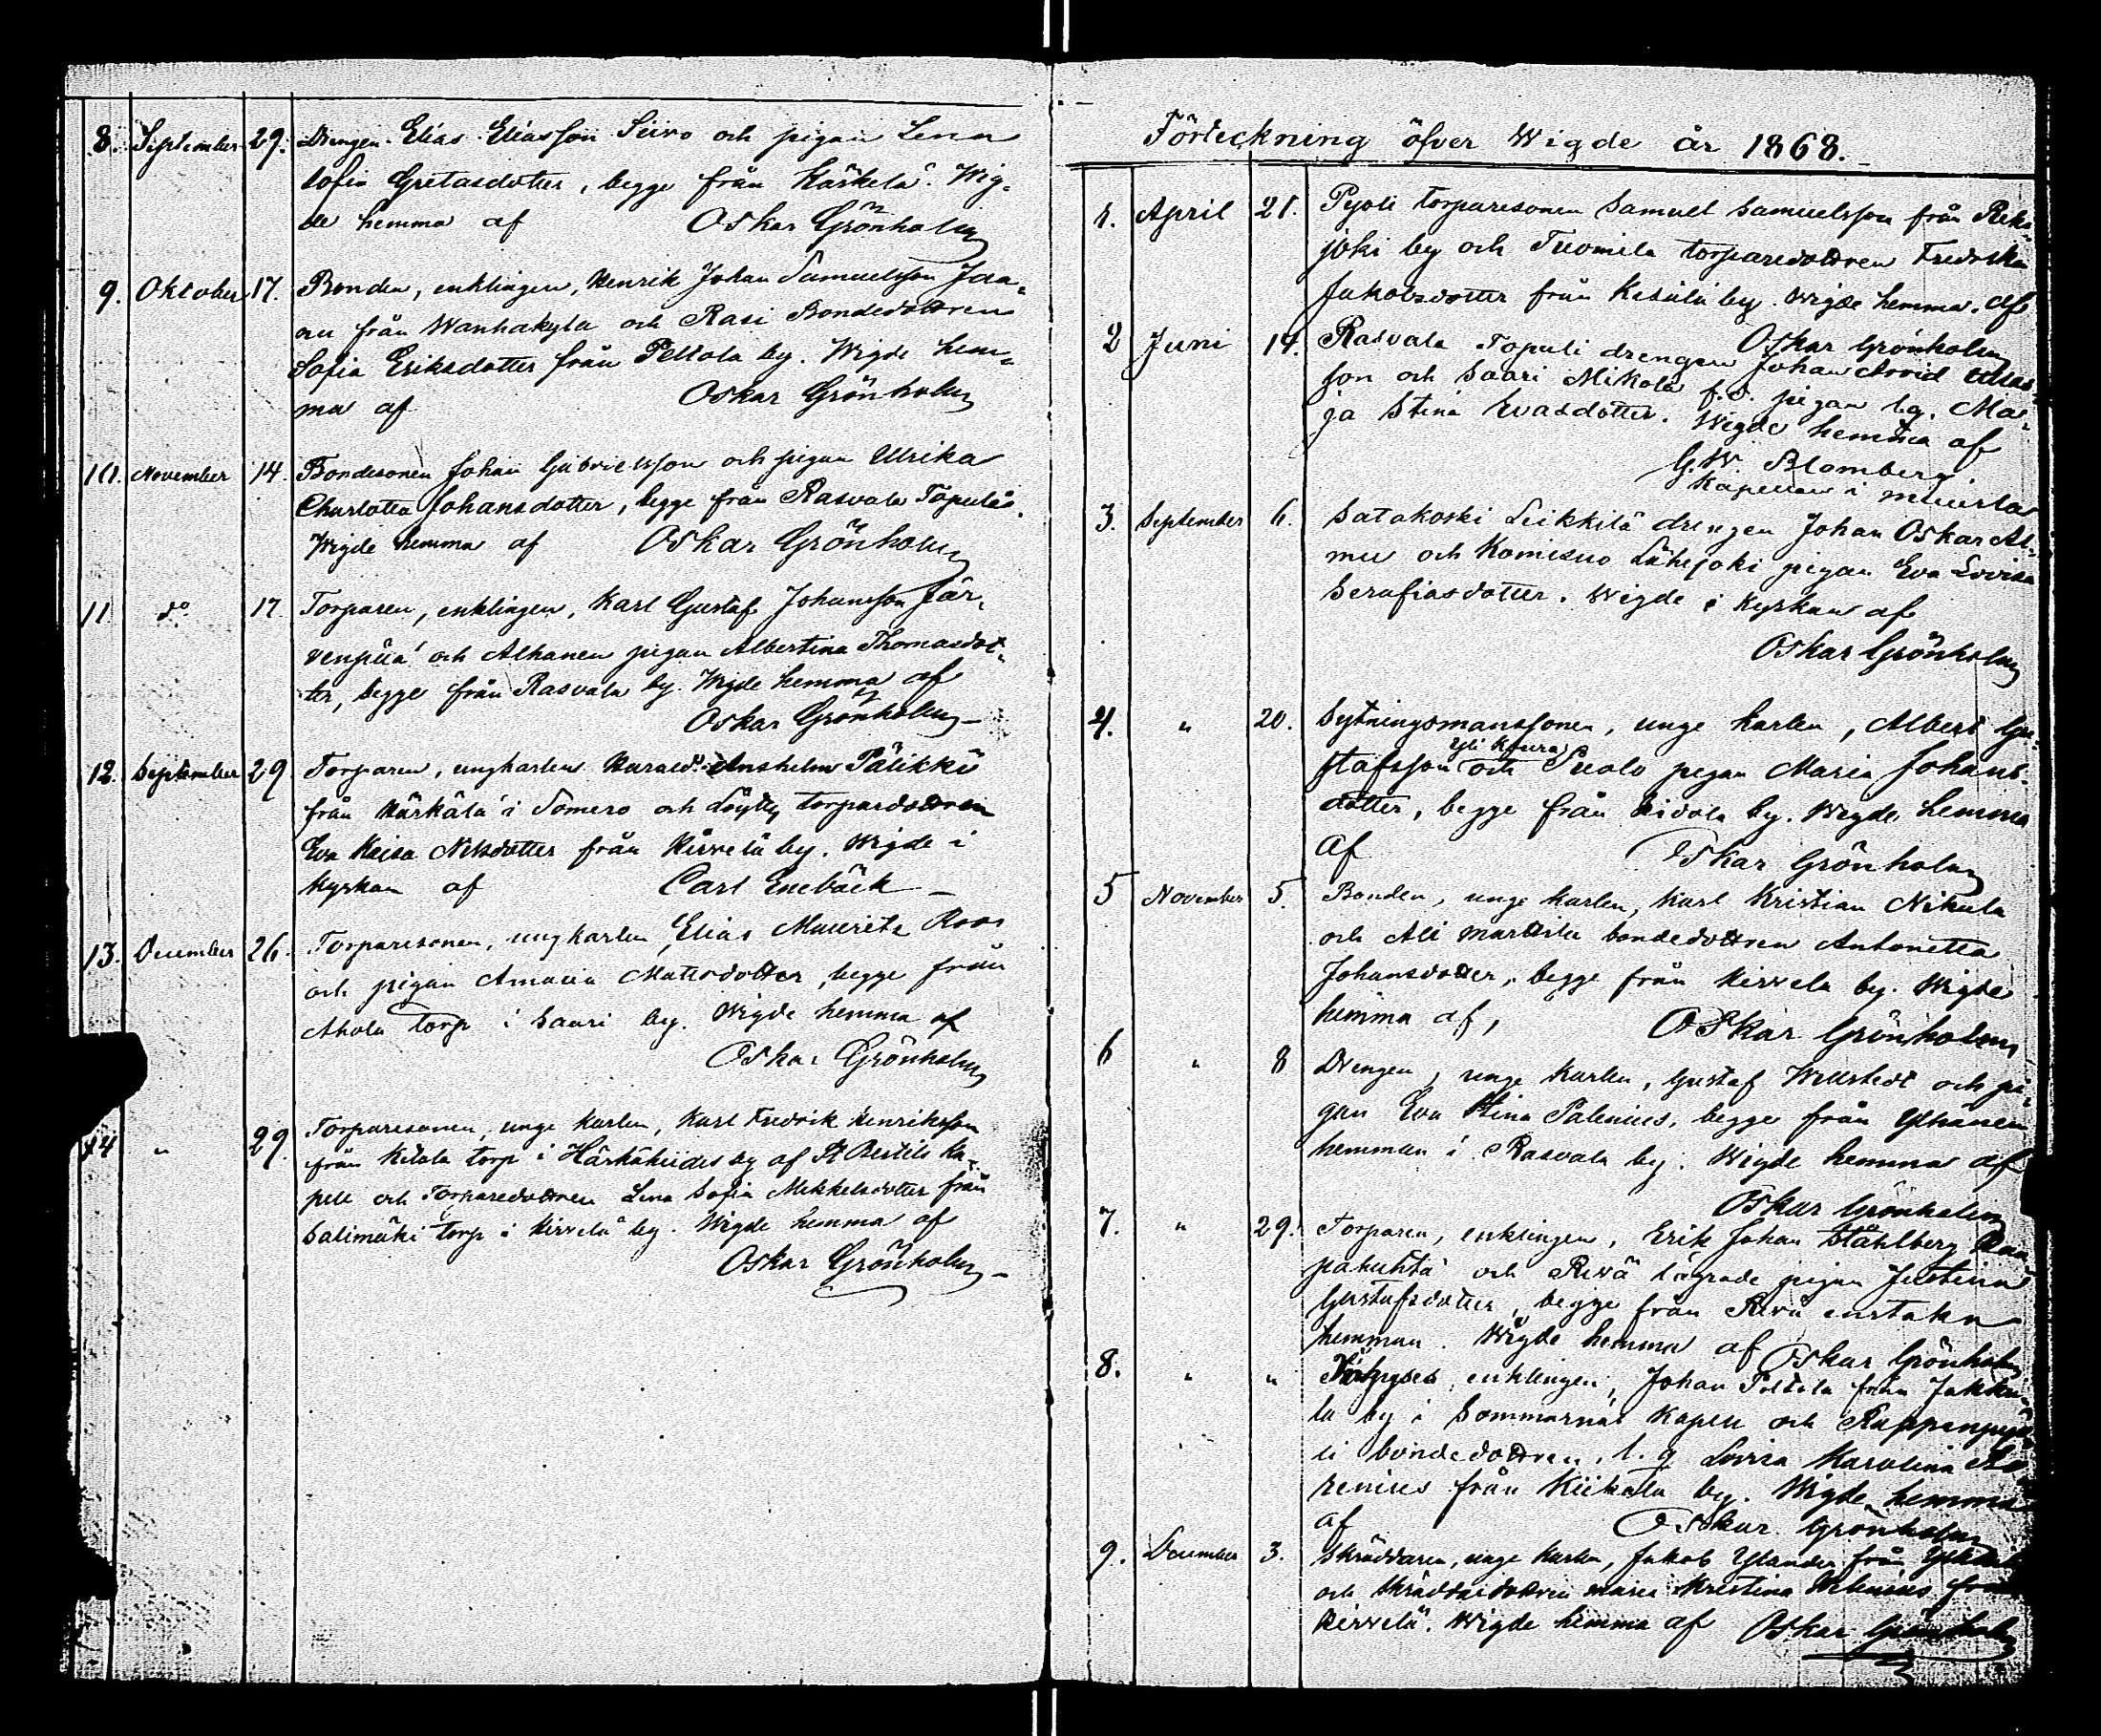 8. September 29. Drengen Elias Eliasson Siiro och pigan Lena
Sofia Gretasdotter, begge från Härkelä. Wig-
de hemma af Oskar Grönholm
9. Oktober 17. Bonden, enklingen, Henrik Johan Samuelsson Jaa-
nu från Wanhakylä och Rasi Bondedottren
Sofia Eriksdotter från Peltola by. Wigde hem-
ma af Oskar Grönholm
10. November 14. Bondesonen Johan Gabrielsson och pigan Ulrika
Charlotta Johansdotter, begge från Rasvala Topula.
Wigde hemma af Oskar Grönholm
11 do 17. Torparen, enklingen, Karl Gustaf Johansson Jär-
venpää och Alhanen pigan Albertina Thomasdot-
ter, begge från Rasvala by. Wigde hemma af
Oskar Grönholm
12. September 29 Torparen, ungkarlen Anshelm Pälikkö
från Härkälä i Somero och Löytty torpardottren
Eva Kaisa Nilsdotter från Kirvelä by. Wigde i
Kyrkan af Carl Enebäck
13. December 26. Torparesonen, ungkarlen Elias Mauritz Roos
och pigan Amalia Mattsdotter, begge från
Ahola torp i Saari by. Wigde hemma af
Oskar Grönholm
14 " 29. Torparesonen, unge karlen, Karl Fredrik Henriksson
från Kitola torp i Härkähiides by af St Bertils Ka-
pell och Torparedottren Lena Sofia Mikkelsdotter från
Salimäki torp i Kirvelä by. Wigde hemma af
Oskar Grönholm
Förteckning öfver Wigde år 1868.
1. April 21. Pyöli torparesonen Samuel Samuelsson från Reki-
joki by och Tuomila torparedottren Fredrika
Jakobsdotter från Kesälä by. Wigde hemma. af
Oskar Grönholm
2 Juni 14. Rasvala Topuli drengen Johan Arvid
son och Saari Mikola f.d. pigan lg. Ma-
ja Stina Evasdotter. Wigde hemma af
G.W. Blomberg
Kapellan i
3. September 6. Satakoski Leikkilä drengen Johan Oskar Al-
mu och Komisuo Lähejoki pigan Eva Lovisa
Serafiasdotter. Wigde i Kyrkan af
Oskar Grönholm
4. " 20. Sytningsmanssonen, unge karlen, Albert Gu-
Yli Knura
stafsson och Puolo pigan Maria Johans-
dotter, begge från by. Wigde hemma
af Oskar Grönholm
5 November 5. Bonden, unge karlen, Karl Kristian Nikula
och Ali Marttila bondedottren Antonetta
Johansdotter, begge från Kirvela by. Wigde
hemma af, Oskar Grönholm
6 " 8 Drengen, unge karlen, Gustaf Wellstedt och pi-
gan Eva Stina Palenius, begge från Ylhänen
hemman i Rasvala by. Wigde hemma af
Oskar Grönholm
7. " 29. Torparen, enklingen, Erik Johan Ståhlberg
pahuhta och Rivä lägrade pigan Justina
Gustafsdotter, begge från Rivä enstaka
hemman. Wigde hemma af Oskar Grönholm
8. " " enklingen, Johan Peltola från Jakku-
la by i Sommarnäs Kapell och
li bondedottren, l. q Lovisa Karolina
renius från Kiikala by. Wigde hemma
af Oskar Grönholm
9. December 3. Skräddaren, unge karlen, Jakob Ylander från
och Skräddaredottren Maria Kristina från
Kirvelä. Wigde hemma af Oskar Grönholm